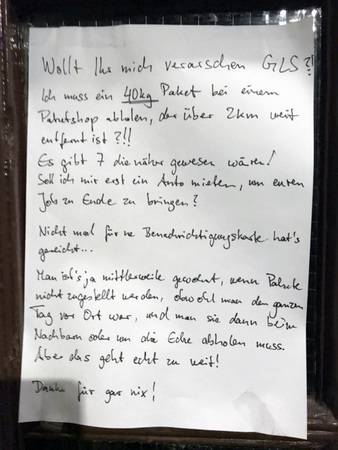 Wollt Ihr mich verarschen GLS?!
Ich muss ein 40kg Paket bei einem
Paketshop abholen, der über 2km weit
entfernt ist?!!
Es gibt 7 die näher gewesen wären!
Soll ich mir erst ein Auto mieten, um euren
Job zu Ende zu bringen?
Nicht mal für ne Benachrichtigungskarte hat's
gereicht...
Man ist's ja mittlerweile gewohnt, wenn Pakete
nicht zugestellt werden, obwohl man den ganzen
Tag vor Ort war, und man sie dann beim
Nachbarn oder um die Ecke abholen muss.
Aber das geht echt zu weit!
Danke für gar nix!